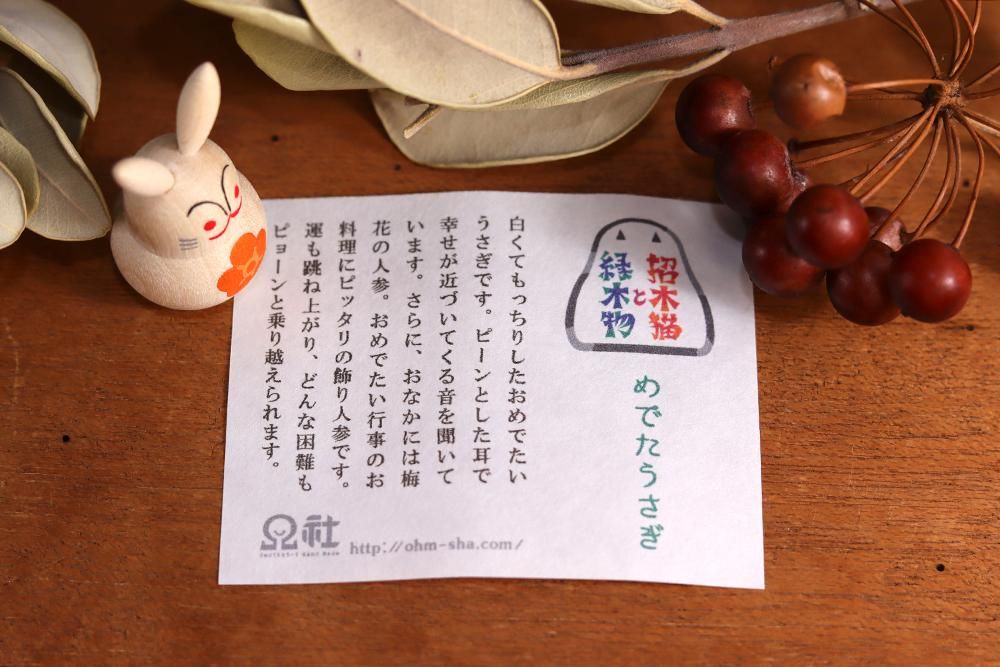 招木猫
と
縁木物
めでたうさぎ
白くてもっちりしたおめでたい
うさぎです。ピーンとした耳で
幸せが近づいてくる音を聞いて
います。さらに、おなかには梅
花の人参。おめでたい行事のお
料理にピッタリの飾り人参です。
運も跳ね上がり、どんな困難も
ピョーンと乗り越えられます。
Ω社
http://ohm-sha.com/